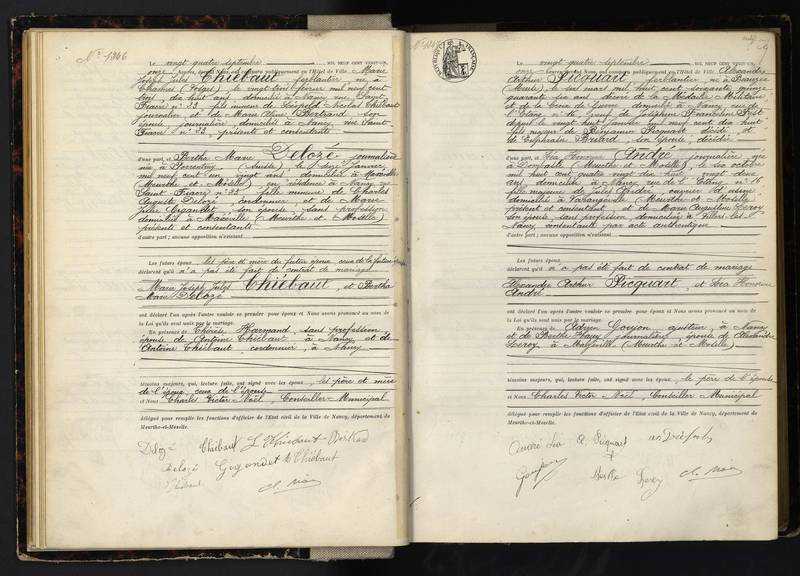 N° 1346
Le vingt quatre septembre MIL NEUF CENT VINGT-UN,
onze heures, devant Nous, ont comparu publiquement en l'Hôtel de Ville Marie
Joseph Jules Thiébaut, ferblantier, né à
Charmes (Vosges) le vingt trois février mil neuf cent
dix huit ans, domicilié à Nancy rue Saint
Fiacre n° 33, fils mineur de Léopold Nicolas Thiébaut
journalier et de Marie Bertrand, son
épouse, journalière, domiciliés à Nancy, rue Saint
Fiacre n° 33, présents et consentants
d'une part, et Berthe Marie Delozé, journalière
née à Porrentruy (Suisse), le janvier
mil neuf cent un, vingt ans, domiciliée à Maxéville
(Meurthe et Moselle) en résidence à Nancy rue
Saint Fiacre n° 33, fille mineure de Charles
Auguste Delozé cordonnier, et de Marie
Julie, son épouse, sans profession
domiciliés à Maxéville (Meurthe et Moselle)
présents et consentants
d'autre part; aucune opposition n'existant
Les futurs époux, les père et mère du futur époux ceux de la future épouse
déclarent qu'il n'a pas été fait de contrat de mariage
Marie Joseph Jules Thiébaut, et Berthe
Marie Delozé
ont déclaré l'un après l'autre vouloir se prendre pour époux et Nous avons prononcé au nom de
la Loi qu'ils sont unis par le mariage.
En présence de Thérèse Harmand, sans profession
épouse de Antoine Thiébaut à Nancy et de
Antoine Thiébaut cordonnier, à Nancy
témoins majeurs, qui, lecture faite, ont signé avec les époux, les père et mère
de l'époux, ceux de l'épouse
et Nous Charles Victor Noël, Conseiller Municipal
délégué pour remplir les fonctions d'officier de l'Etat civil de la Ville de Nancy, département de
Meurthe-et-Moselle.
Delozé Thiébaut L Thiébaut-Bertrand
Delozé Thiébaut
Thiébaut
Ch. Noël
N° 1347
Le vingt quatre septembre MIL NEUF CENT VINGT-UN,
onze heures, devant Nous, ont comparu publiquement en l'Hôtel de Ville Alexandre
Arthur Picquart, ferblantier, né à
(Meuse) le six mars mil huit cent soixante quinze
quarante six ans, décoré de la Médaille Militaire
et de la Croix de Guerre, domicilié à Nancy rue de
l'Etang n° 16, veuf de Joséphine
depuis le vingt sept janvier mil neuf cent dix huit
fils majeur de Benjamin Picquart décédé, et
de Euphrasie, son épouse, décédée
d'une part, et Léa Honorine André, journalière, née
à Dombasle (Meurthe et Moselle), le six
mil huit cent quatre vingt dix huit, vingt deux
ans, domiciliée à Nancy, rue de l'Etang n° 16
fille majeure de André, ouvrier d'usine
domicilié à Varangéville (Meurthe et Moselle)
présent et consentant, et de Marie Augustine Leroy
son épouse, sans profession domiciliée à Villers les
Nancy, consentante par acte authentique
d'autre part; aucune opposition n'existant
Les futurs époux
déclarent qu'il n'a pas été fait de contrat de mariage
Alexandre Arthur Picquart, et Léa Honorine
André
ont déclaré l'un après l'autre vouloir se prendre pour époux et Nous avons prononcé au nom de
la Loi qu'ils sont unis par le mariage.
En présence de ajusteur, à Nancy
et de Berthe journalière, épouse de
Leroy, à (Meurthe et Moselle)
témoins majeurs, qui, lecture faite, ont signé avec les époux, le père de l'épouse
et Nous Charles Victor Noël, Conseiller Municipal
délégué pour remplir les fonctions d'officier de l'Etat civil de la Ville de Nancy, département de
Meurthe-et-Moselle.
André Léa A. Picquart
Berthe Leroy Ch. Noël